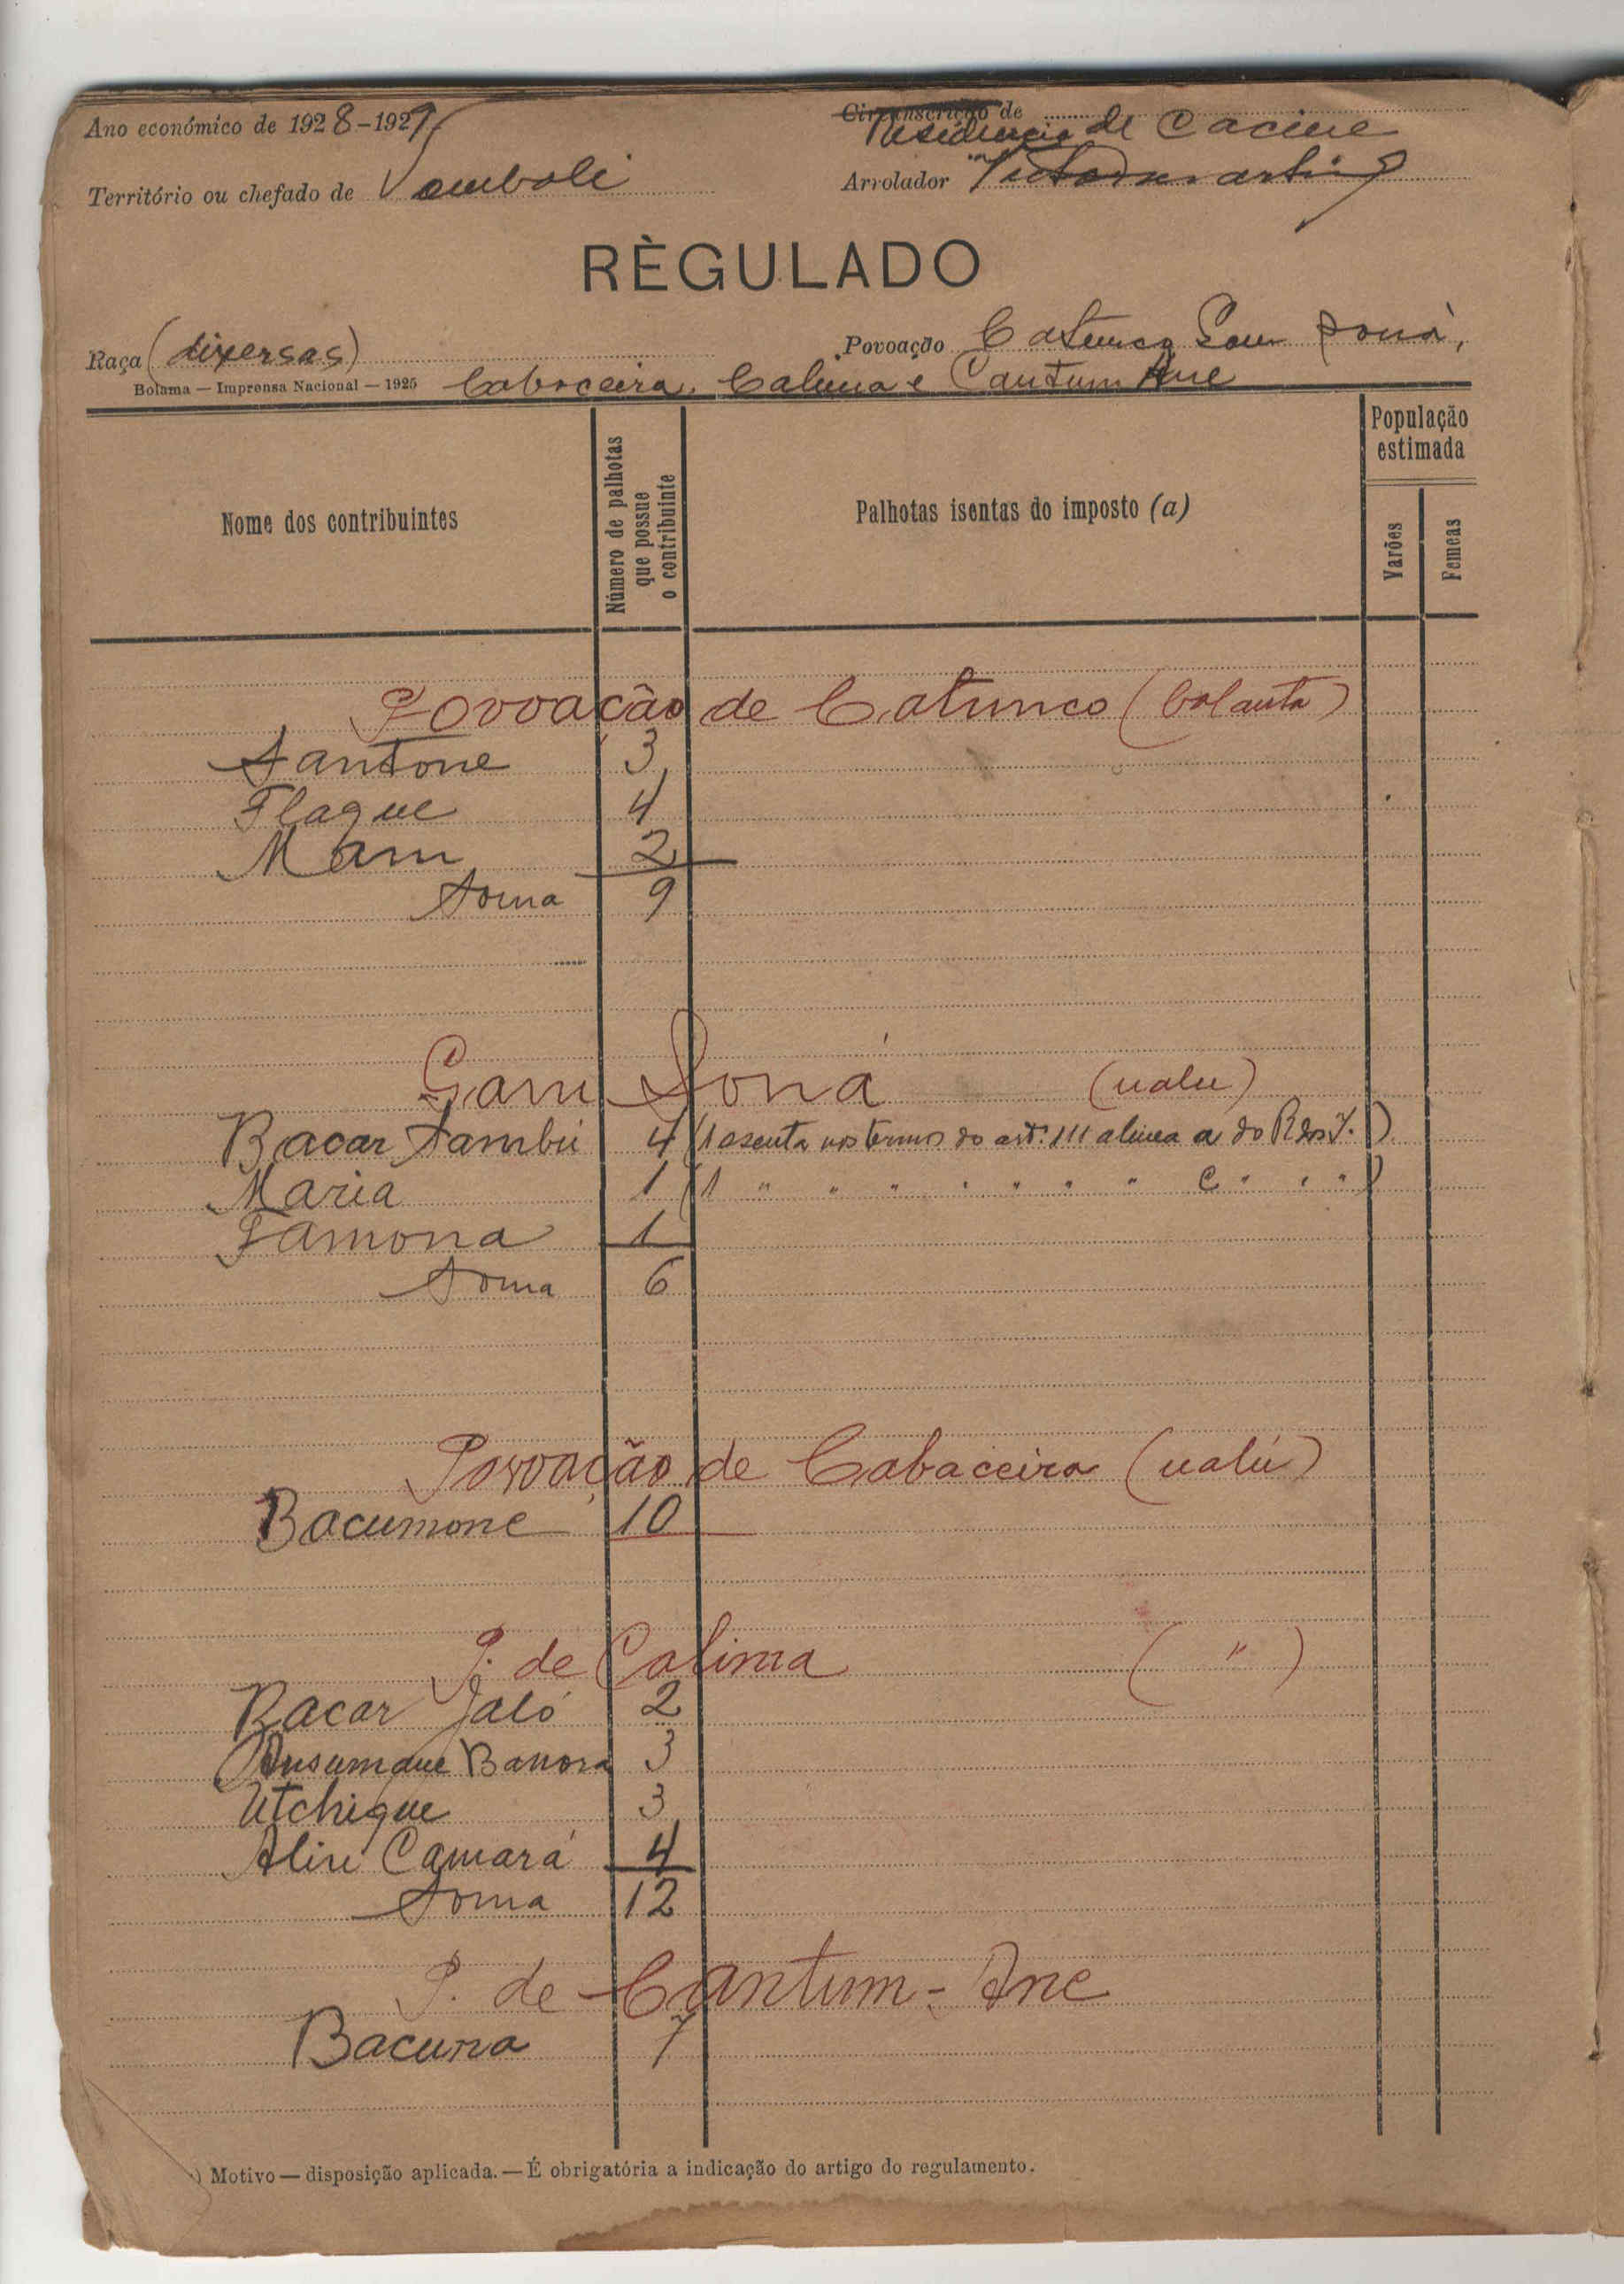 Ano económico de 1928-1929
Circunscrição de
Residencia de Cacine
Território ou chefado de Tomboli
Arrolador Victor Martins
RÈGULADO
Raça (diversas)
Povoação Catunco Gam Soná,
Bolama — Imprensa Nacional — 1925 Cabaceira, Calima e Cantum Ane
Nome dos contribuintes
Número de palhotas
que possue
o contribuinte
Palhotas isentas do imposto (a)
População
estimada
Varões
Femeas
Povoação de Catunco (balanta)
Santone 3
Flaque 4
Mam 2
Soma 9
Gam Soná (nalu)
Bacar Sambú 4 (1 esenta nos termos do art. 111 alinea a do R dos I.)
Maria 1 (1 " " " " " " " C " " ")
Famona 1
Soma 6
Povoação de Cabaceira (nalú)
Bacumone 10
P. de Calima ( " )
Bacar Jaló 2
Ansumane Banora 3
Utchique 3
Aliu Camará 4
Soma 12
P. de Cantum-Ane
Bacuna 7
) Motivo — disposição aplicada. — É obrigatória a indicação do artigo do regulamento.